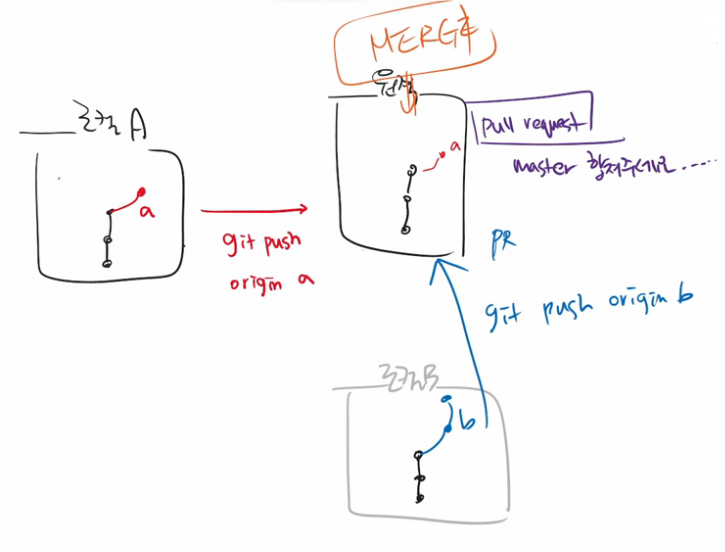 MERGE
원격
로컬 A
a
git push
origin a
a
pull request
master 합쳐주세요.....
PR
git push origin b
로컬B
b